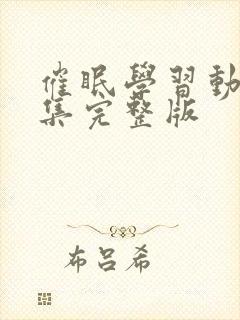 催眠學習動
集完整版
布呂希